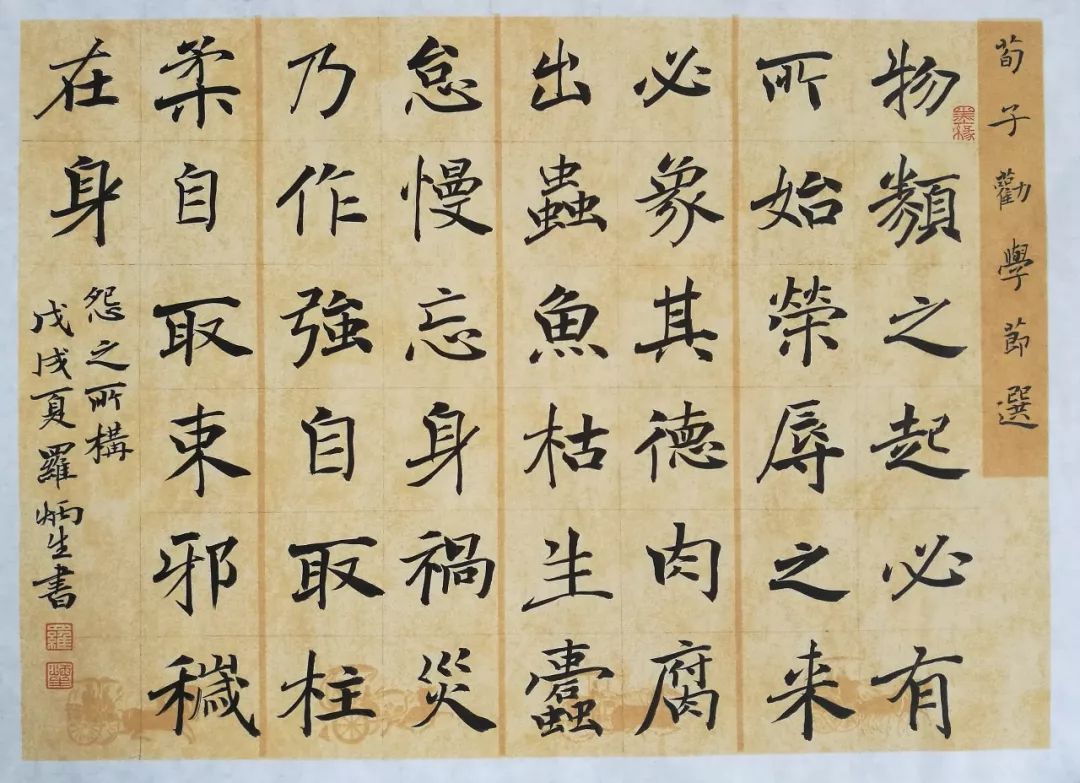 荀子勸學節選
物類之起必有
所始榮辱之来
必象其德肉腐
出蟲魚枯生蠹
怠慢忘身禍災
乃作強自取柱
柔自取束邪穢
在身
怨之所構
戊戌夏羅炳生書
墨緣